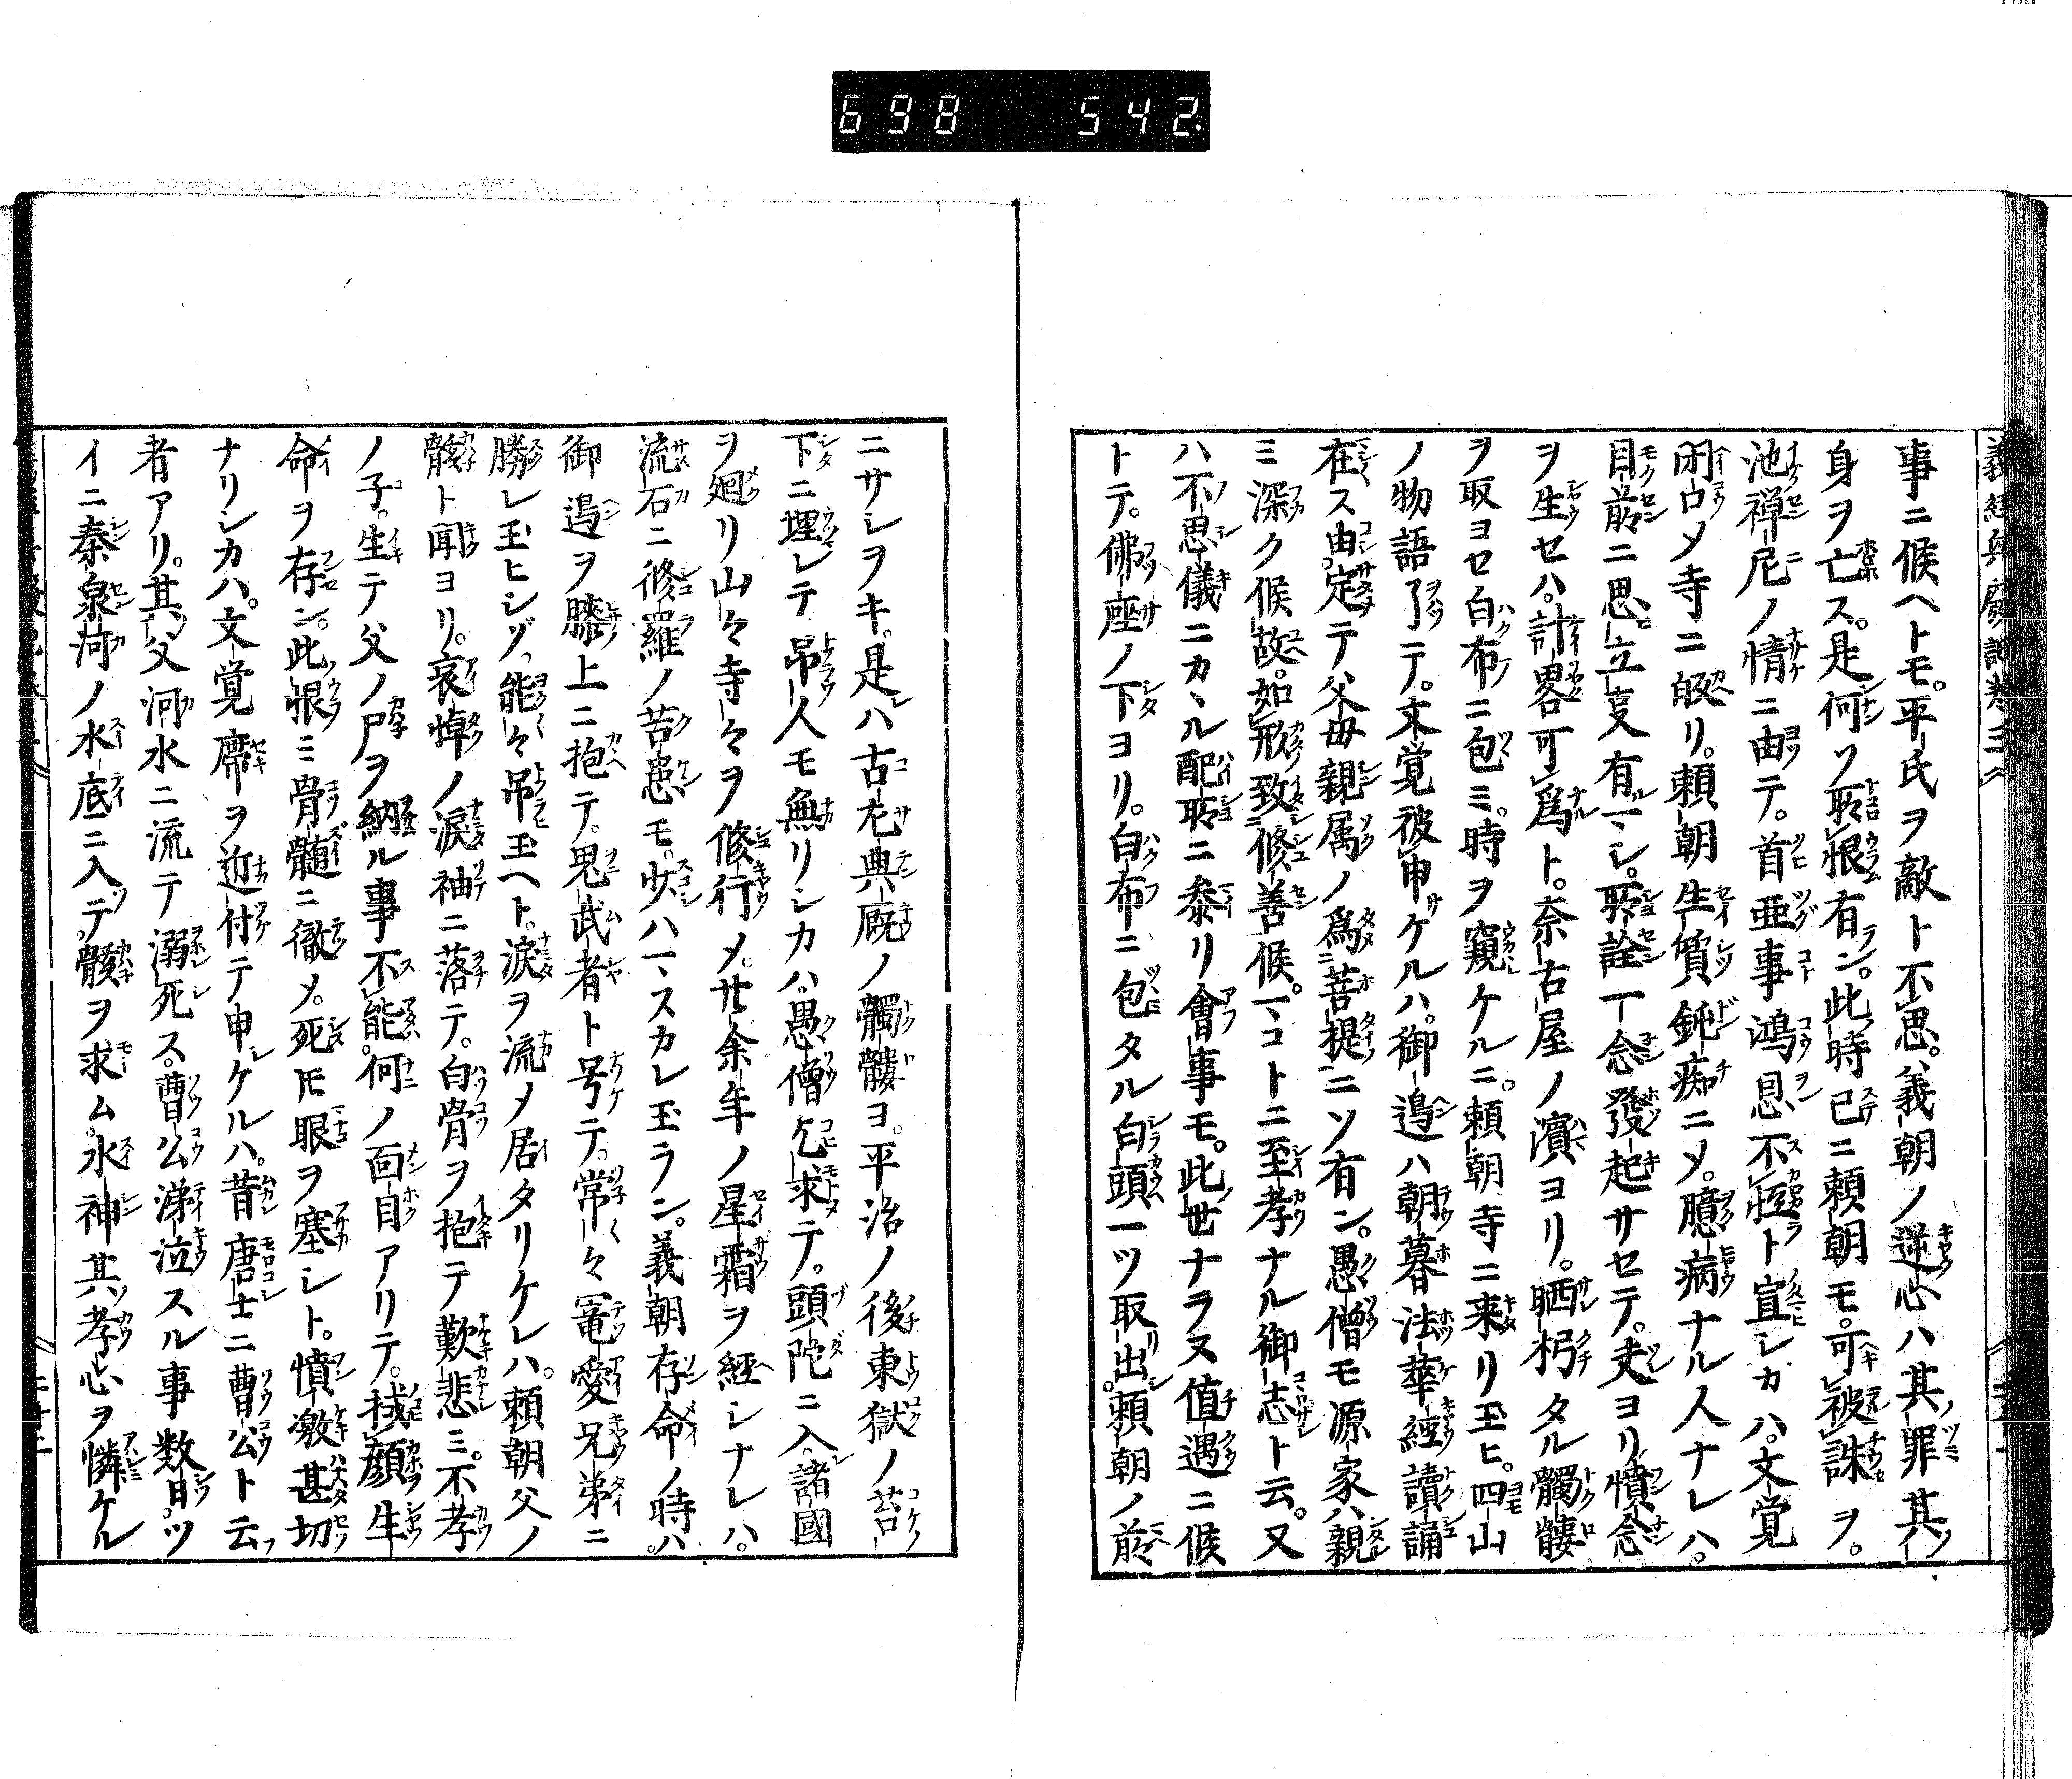 698 542.
事ニ候ヘトモ。平氏ヲ敵ト不思。義朝ノ逆心ハ其罪其
身ヲ亡ス。是何ソ所恨有ン。此時已ニ頼朝モ。可被誅ヲ。
池禅尼ノ情ニ由テ。首亜事鴻恩不怪ト宣シカハ。文覚
閉口メ寺ニ皈リ。頼朝生質鈍痴ニメ。臆病ナル人ナレハ。
目前ニ思立叓有ヘシ。所詮一念發起サセテ。夫ヨリ憤念
ヲ生セハ。計畧可爲ト。奈古屋ノ濱ヨリ。晒朽タル髑髏
ヲ取ヨセ白布ニ包ミ。時ヲ窺ケルニ。頼朝寺ニ来リ玉ヒ。四山
ノ物語了テ。文覚被申ケルハ。御邉ハ朝暮法華經讀誦
在ス由。定テ父母親属ノ爲菩提ニソ有ン。愚僧モ源家ハ親
ミ深ク候故。如形致修善候。マコトニ至孝ナル御志ト云。又
ハ不思儀ニカヽル配所ニ参リ會事モ。此世ナラヌ値遇ニ候
トテ。佛座ノ下ヨリ。白布ニ包タル白頭一ツ取出。頼朝ノ前
ニサシヲキ。是ハ古左典厩ノ髑髏ヨ。平治ノ後東獄ノ苔
下ニ埋レテ吊人モ無リシカハ。愚僧乞求テ。頭陀ニ入諸國
ヲ廻リ山々寺々ヲ修行メ。廿余年ノ星霜ヲ經シナレハ。
流石ニ修羅ノ苦患モ。少ハマスカレ玉ラン。義朝存命ノ時ハ
御邉ヲ膝上ニ抱テ。鬼武者ト号テ。常々寵愛兄弟ニ
勝レ玉ヒシゾ。能々吊玉ヘト。涙ヲ流メ居タリケレハ。頼朝父ノ
骸ト聞ヨリ。哀悼ノ涙袖ニ落テ。白骨ヲ抱テ歎悲ミ。不孝
ノ子。生テ父ノ尸ヲ納ル事不能。何ノ面目アリテ。拭顔生
命ヲ存ン。此恨ミ骨髄ニ徹メ。死トモ眼ヲ塞シト。憤激甚切
ナリシカハ。文覚席ヲ近付テ申ケルハ。昔唐士ニ曹公ト云
者アリ。其父河水ニ流テ溺死ス。曹公涕泣スル事数日。ツ
イニ秦泉河ノ水底ニ入テ。骸ヲ求ム。水神其孝心ヲ憐ケル